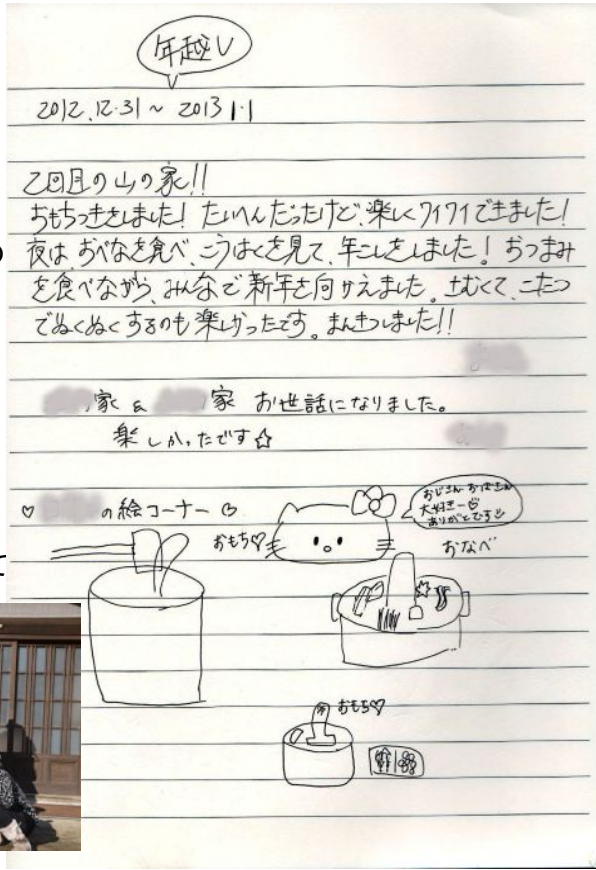 年越し
2012.12.31～2013 1.1
2回目の山の家!!
おもちつきをしました! たいへんだったけど、楽しくワイワイできました!
夜は、おべなを食べ、こうはくを見て、年こしをしました! おつまみ
を食べながら、みんなで新年を向かえました。さむくて、こたつ
でぬくぬくするのも楽しかったです。まんきつしました!!
家 & 家 お世話になりました。
楽しかったです☆
♡ の絵コーナー♡
おじさん おばさん
大好きー♡
ありがとです
おもち♡
おなべ
おもち♡